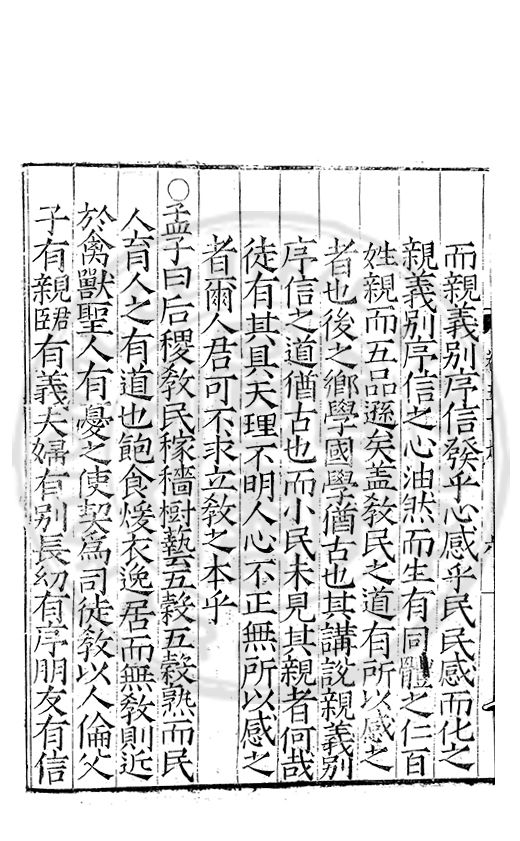 而親義别序信發乎心感乎民民感而化之
親義别序信之心油然而生有同體之仁百
姓親而五品遜矣盖教民之道有所以感之
者也後之鄉學國學猶古也其講說親義别
序信之道猶古也而小民未見其親者何哉
徒有其具天理不明人心不正無所以感之
者爾人君可不求立教之本乎
○孟子曰后稷教民稼穡樹藝五穀五穀熟而民
人育人之有道也飽食煖衣逸居而無教則近
於禽獸聖人有憂之使契爲司徒教以人倫父
子有親君臣有義夫婦有别長幼有序朋友有信